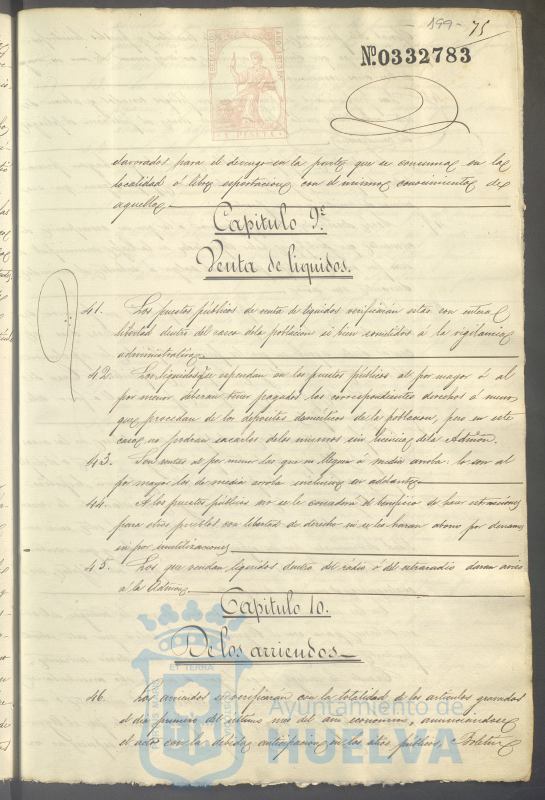 199 - 75
Nº 0332783
para el devengo en la parte que se consuma en la
localidad ó libre esportacion con el mismo conocimiento de
aquella
Capitulo 9º
Venta de liquidos.
41. Los puestos públicos de venta de liquidos verificarán estas con entera
libertad dentro del casco de la poblacion si bien sometidos á la vigilancia
administrativa
42. Los liquidos que espendan en los puestos públicos al por mayor ó al
por menor deberan tener pagados los correspondientes derechos á menos
que procedan de los depositos domesticos de la poblacion, pero en este
caso, no podran sacarlos de los mismos sin licencia de la Admon.
43. Son ventas al por menor las que no lleguen á media arroba: lo son al
por mayor las de media arroba inclusive en adelante
44. A los puestos públicos no se le concederá el beneficio de hacer
para otros pueblos con libertad de derecho ni se les haran abono por derrames
ni por inutilizaciones
45. Los que vendan liquidos dentro del radio ó del extraradio daran aviso
á la Admon
Capitulo 10.
De los arriendos
46. Los arriendos se verificarán con la totalidad de los articulos gravados
el dia primero del último mes del año economico, anunciandose
el acto con la debida anticipacion en los sitios públicos, Boletin
ET TERRA
Ayuntamiento de
HUELVA